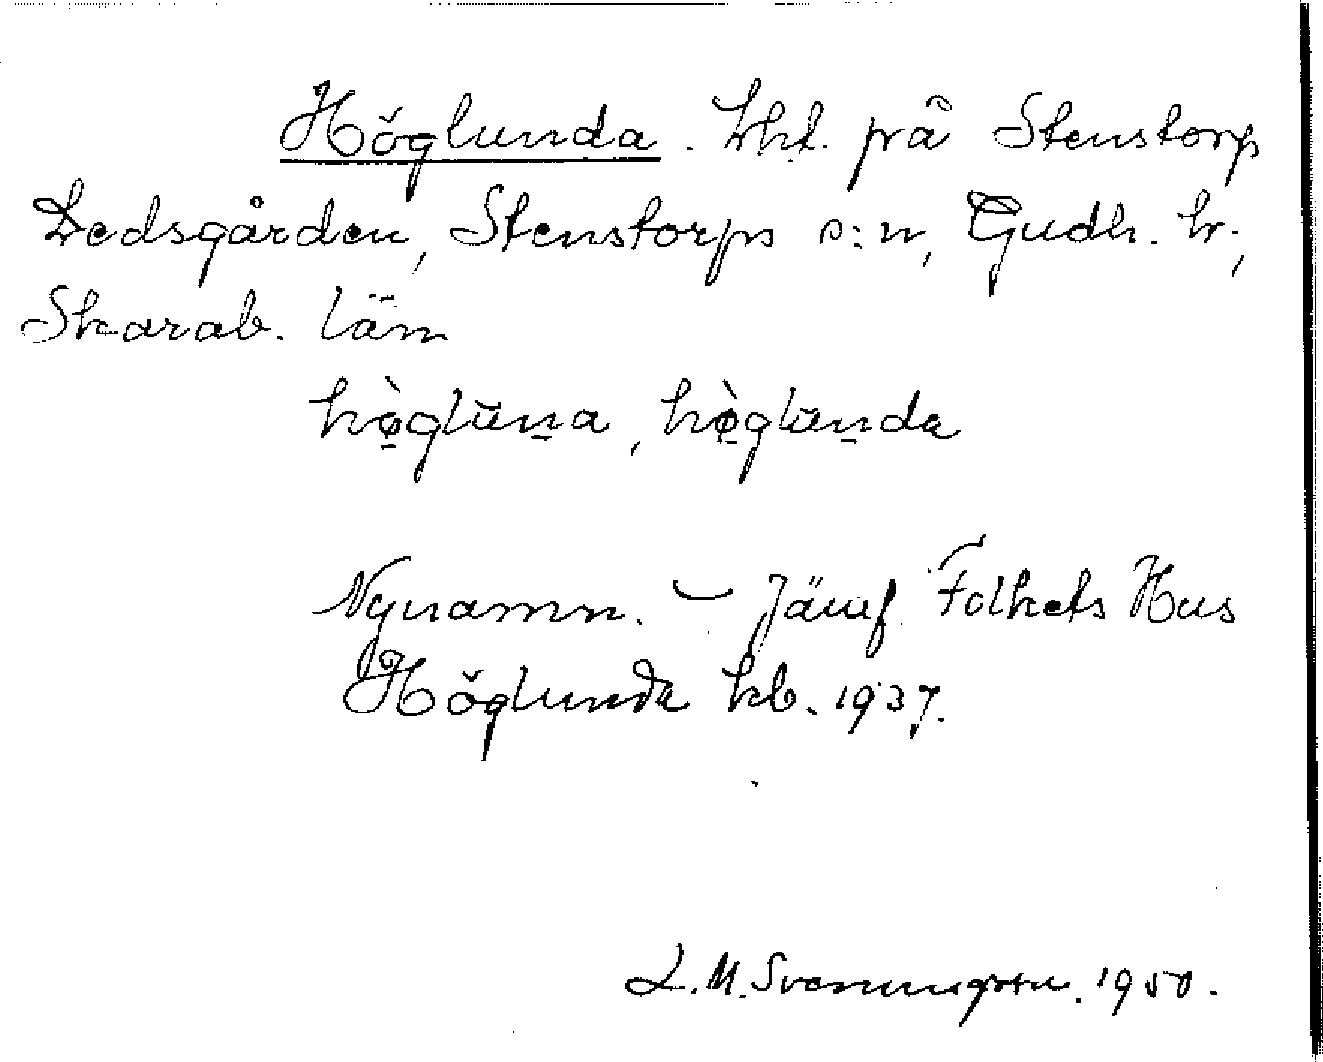 Höglunda. Lht. på Stenstorp
Dedsgården, Stenstorps s:n, Gudh. hr.,
Skarab. län
hø̀glūna, hø̀glūnda
Nynamn. – Jämf. Folkets Hus
Höglunda kb. 1937.
L. M. Svenungsson. 1950.